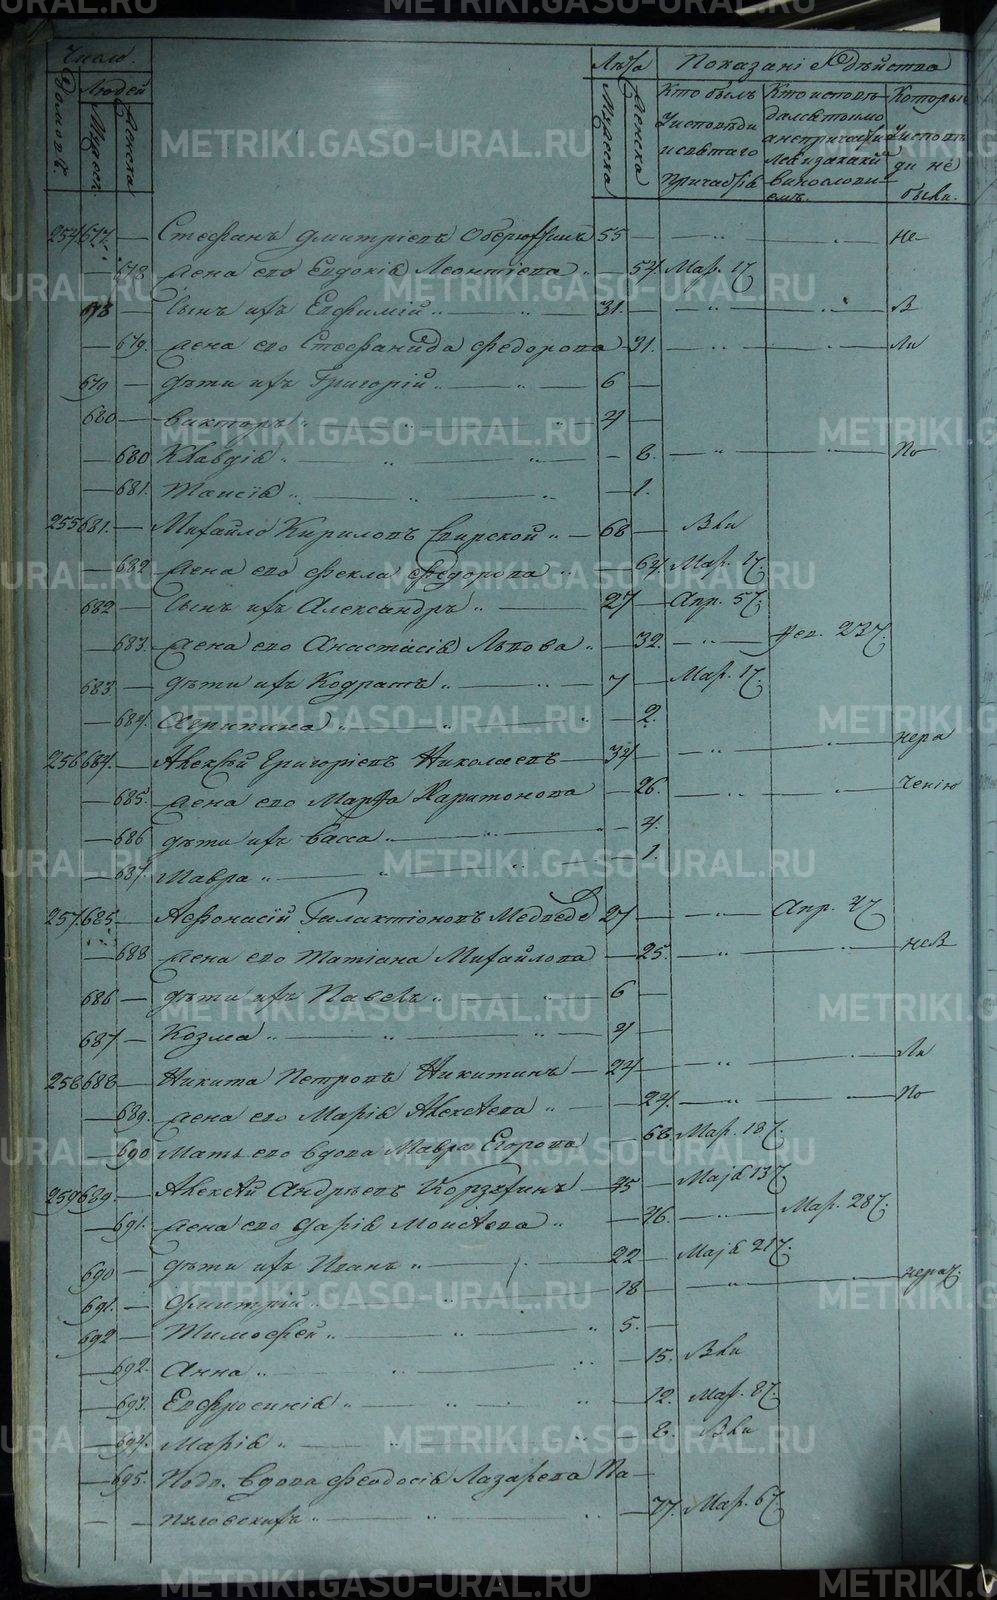 METRIKI.GASO-URAL.RU
Число.
Домовъ.
Людей
Мужеск.
Женска
Лѣта
Мужеска
Женска
Показаніе дѣйства
Кто былъ
у исповѣди
и святаго
причастія
Кто исповѣ
дался токмо
а не причасти
лся и за какимъ
винословіемъ.
Которые
у исповѣ
ди не
были.
254 677. — Стефанъ Дмитріевъ 55 — — не
— 678 жена его Евдокія Леонтіева „ — 54 Мар. 17
678 — сынъ ихъ Евфимій „ — 31. — В
— 679. жена его Стефанида Федорова 31. — Ли
679 — дѣти ихъ Григорій „ — 6 —
680 — Викторъ „ — 4 —
— 680 Клавдія „ — 8. — По
— 681. Таисія „ — 1.
255 681. — Михайло Кириловъ „ — 68 — Вли
— 682 жена его Фекла Федорова „ — 64 Мар. 17.
682 — сынъ ихъ Александръ „ — 27 — Апр. 57.
— 683. жена его Анастасія Львова „ — 32. — „ — 237.
683. — дѣти ихъ Кодратъ „ — 7 — Мар. 17.
— 684. Агрипина „ — 2.
256 684. — Алексѣй Григоріевъ Николаевъ — 34 — нера
— 685. жена его Марфа Харитонова — 26. — ченію
— 686 дѣти ихъ Васса „ — 4.
— 687. Мавра „ — 1.
257. 685 — Афонасій Галактіоновъ Медведе 27 — „ — Апр. 47
— 688 жена его Татіана Михайлова — 25. — неВ
686 — дѣти ихъ Павелъ „ — 6 —
687 — Козма „ — 4 —
258 688 — Никита Петровъ Никитинъ — 24 — Ли
— 689. жена его Марія Алексѣева „ — 24. — По
— 690 Мать его вдова Мавра Егорова — 68 Мар. 187.
259 689. — Алексѣй Андрѣевъ 45 — Маія 137
— 691. жена его Дарія Моисѣева „ — 46. — „ — Мар. 287.
690 — дѣти ихъ Иванъ „ — 22 — Маія 217.
691. — Дмитрій „ — 18 — нерач.
692 — Тимофей „ — 5. —
— 692. Анна „ — 15. Вли
— 693. Евфросинія „ — 12. Мар. 87.
— 694. Марія „ — 8. Вли
— 695. Подв. вдова Феодосія Лазарева Па —
— — „ — 77. Мар. 67.